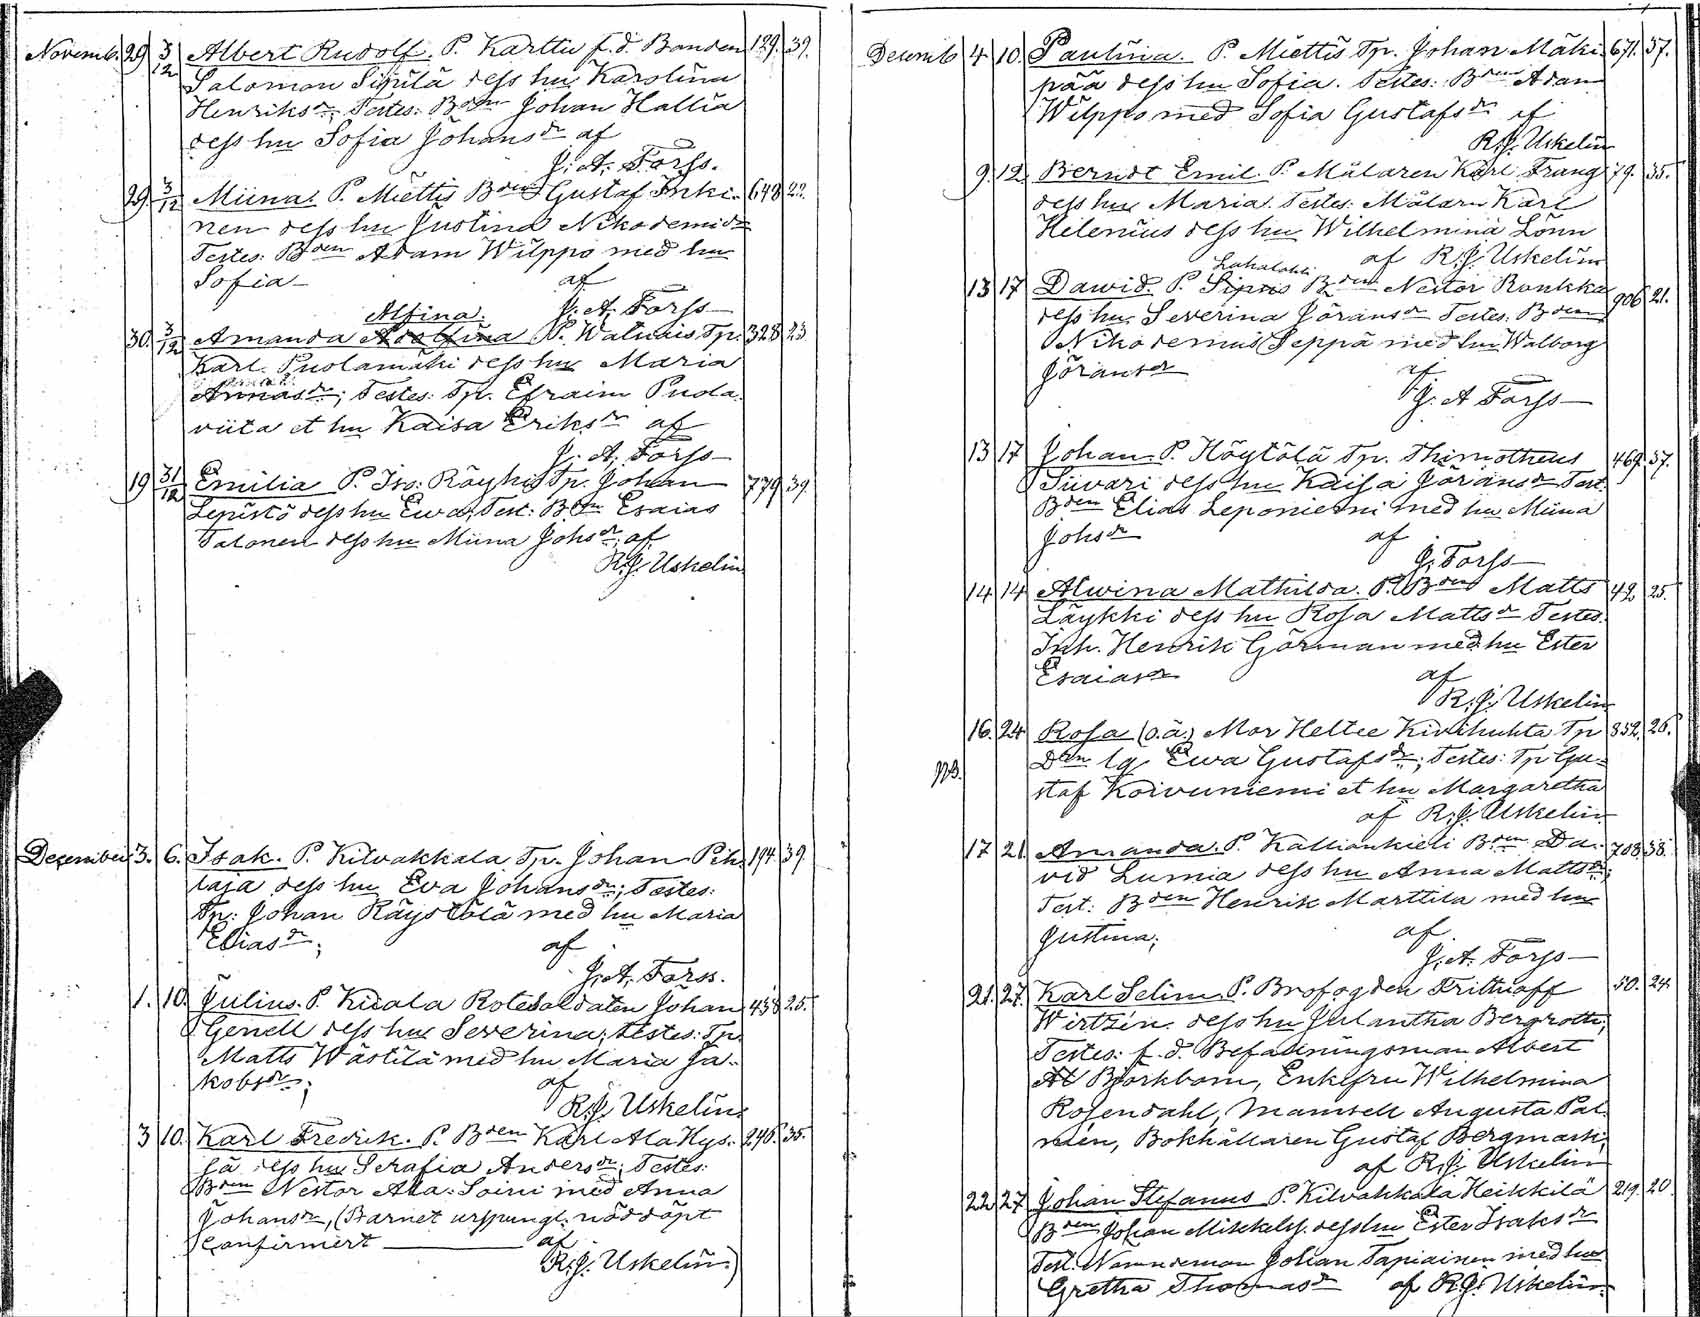 Novemb. 29 3/12 Albert Rudolf. P. Karttu f.d. Bonden 129. 39.
Salomon Sipilä dess hu Karolina
Henriksdr. Testes: Bden Johan Hallia
dess hu Sofia Johansdr af
J. A. Forss.
29. 3/12 Miina. P. Miettis Bden Gustaf Inki- 648 22.
nen dess hu Justina Nikodemidr
Testes: Bden Adam Wilppo med hu
Sofia af
J. A. Forss
Alfina.
30. 3/12 Amanda Adolfina P. Watuais Tp. 328 23
Karl Puolamäki dess hu Maria
Annasdr; Testes: Tp. Efraim Puola-
viita et hu Kaisa Eriksdr af
J. A. Forss
19 31/12 Emilia P. Iso-Röyhiö Tp. Johan 779 39.
Lepistö dess hu Ewa; Test: Bden Esaias
Talonen dess hu Miina Johsdr; af
R.J. Uskelin
December 3. 6. Isak. P. Kilvakkala Tp. Johan Pih- 194. 39.
laja dess hu Eva Johansdr; Testes:
Tp: Johan Räystölä med hu Maria
Eliasdr; af
J. A. Forss.
1. 10. Julius. P. Kuala Rotesoldaten Johan 438 25.
Genell dess hu Severina; Testes: Tp.
Matts Wästilä med hu Maria Ja-
kobsdr; af
R.J. Uskelin.
3 10. Karl Fredrik. P. Bden Karl Ala Kys- 246. 35.
sä dess hu Serafia Andersdr; Testes:
Bden Nestor Ala-Soini med Anna
Johansdr, (Barnet urspungl. nöddöpt
confirmert af
R.J. Uskelin.)
Decemb 4 10. Paulina. P. Miettis Tp. Johan Mäki- 671. 37.
pää dess hu Sofia. Testes: Bden Adam
Wilppo med Sofia Gustafsdr af
R.J. Uskelin
9. 12. Berndt Emil. P. Målaren Karl Frang 79. 35.
dess hu Maria. Testes: Målarn Karl
Helenius dess hu Wilhelmina Lönn
af R.J. Uskelin
Luhalahti
13 17 Dawid. P. Sipris Bden Nestor Ronkka 906 21.
dess hu Severina Jöransdr Testes: Bden
Nikodemus Seppä med hu Walborg
Jöransdr af
J. A Forss
13 17 Johan. P. Höytölä Tp. Thimotheus 469. 37.
Siivari dess hu Kaisa Jöransdr Test.
Bden Elias Leponiemi med hu Miina
Johsdr af
J. Forss
14 14 Alwina Mathilda. P. Bden Matts 42 25.
Läykki dess hu Rosa Mattsdr Testes.
Inh. Henrik Görman med hu Ester
Esaiasdr af
R.J. Uskelin
16. 24 Rosa (o.ä.) Mor Heltee Kivihuhta Tp 852. 26.
NB. Dtn lg Ewa Gustafsdr; Testes: Tp Gu-
staf Koivuniemi et hu Margaretha
af R.J. Uskelin
17 21. Amanda. P. Kalliankieli Bden Da- 708. 38.
vid Lumia dess hu Anna Mattsdr;
Test: Bden Henrik Marttila med hu
Justina; af
J. A. Forss
21. 27. Karl Selim. P. Brofogden Frithioff 50. 24.
Wirtzén. dess hu Julantha Bergroth;
Testes: f.d. Befallningsman Albert
Björkbom, Enkefru Wilhelmina
Rosendahl, Mamsell Augusta Pal-
mén, Bokhållaren Gustaf Bergmark;
af R.J. Uskelin
22 27. Johan Stefanus P. Kilvakkala Heikkilä 219. 20.
Bden Johan Mikkelss. dess hu Ester Isaksdr
Test. Nämndeman Johan Tapiainen med hu
Gretha Thomasdr af R.J. Uskelin.